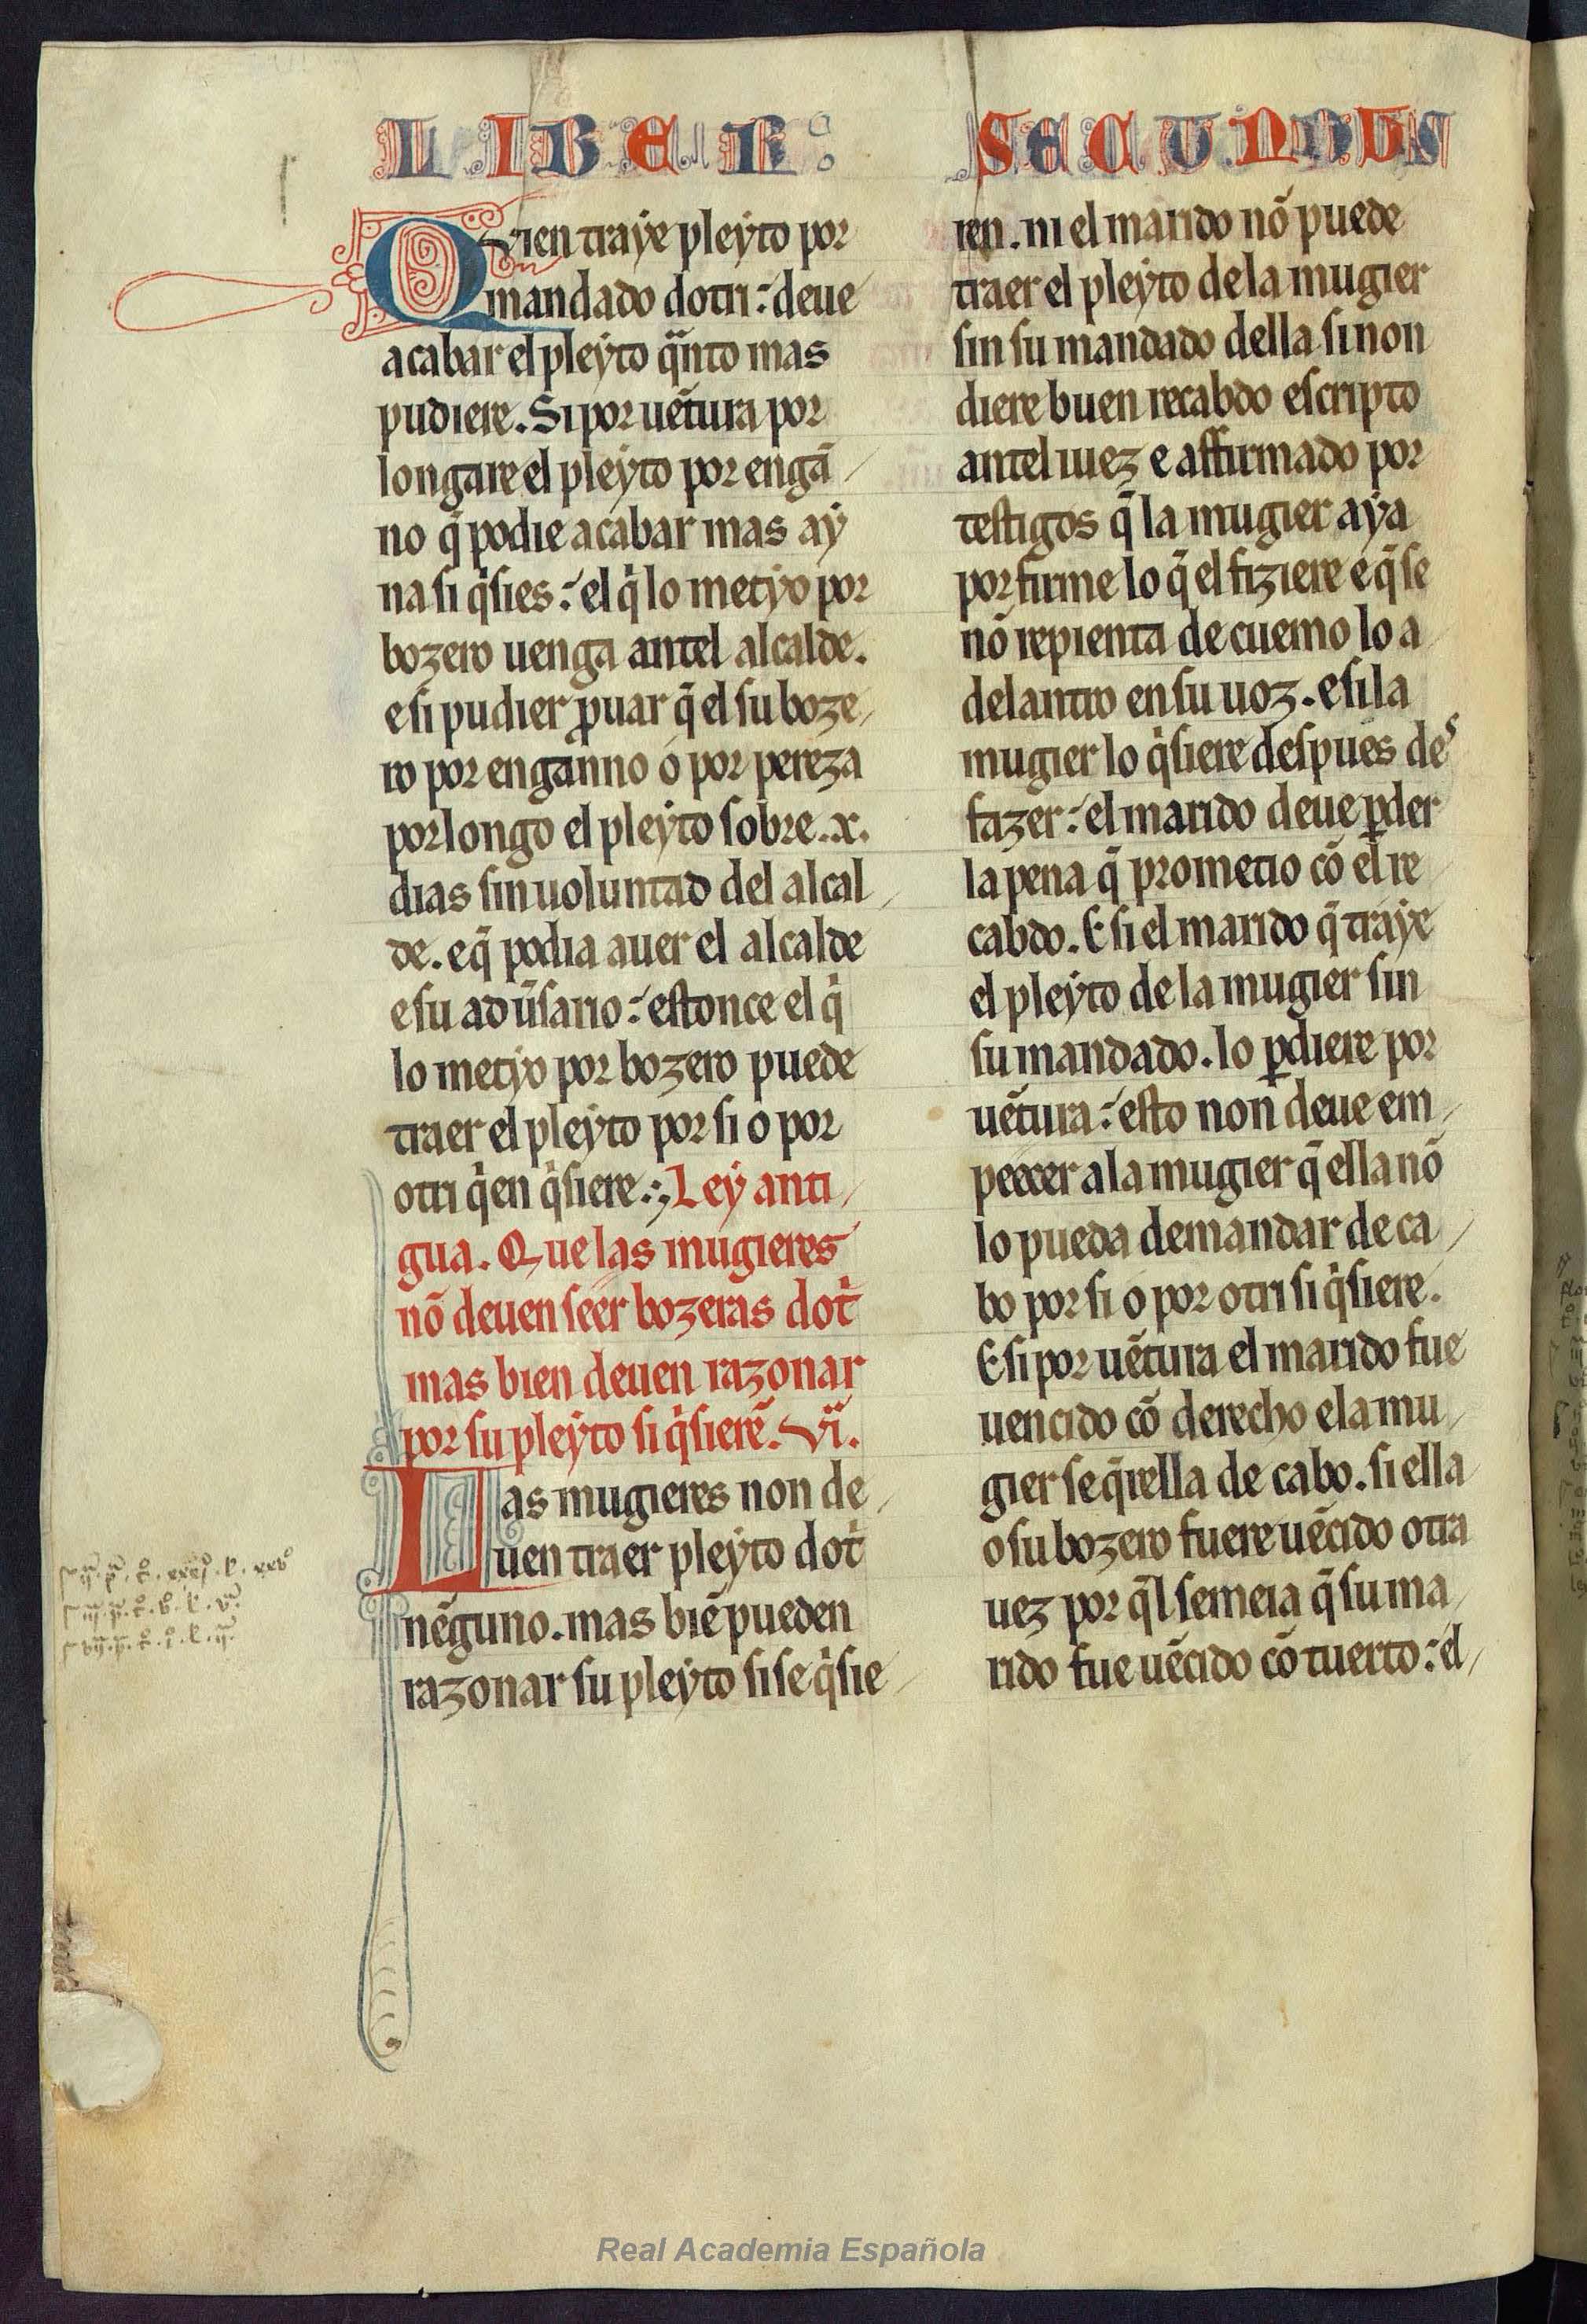 LIBER:
Quien traẏe pleẏto por
mandado dotri: deue
acabar el pleẏto qãnto mas
pudiere. Si por uẽtura por
longare el pleẏto por engã
no q̃ podie acabar mas aẏ
na si q̇sies: el q̇ lo metẏo por
bozero uenga antel alcalde.
e si pudier ꝓuar q̃ el su boze
ro por enganno o por pereza
porlongo el pleẏto sobre .x.
dias sin uoluntad del alcal
de. e q̃ podia auer el alcalde
e su adũsario: estonce el q̇
lo metẏo por bozero puede
traer el pleẏto por si o por
otri q̇en q̇siere. Leẏ anti
gua. Que las mugieres
nõ deuen seer bozeras doṫ
mas bien deuen razonar
por su pleẏto si q̇sierẽ. vi.
Las mugieres non de
uen traer pleẏto doṫ
nẽguno. mas biẽ pueden
razonar su pleẏto si se q̇sie
SECUNDUS
ren. ni el marido nõ puede
traer el pleẏto de la mugier
sin su mandado della si non
diere buen recabdo escripto
antel iuez e affirmado por
testigos q̃ la mugier aẏa
por firme lo q̃ el fiziere e q̃ se
nõ repienta de cuemo lo a
delantro en su uoz. e si la
mugier lo q̇siere despues des
fazer: el marido deue ꝑder
la pena q̃ prometio cõ el re
cabdo. E si el marido q̃ traẏe
el pleẏto de la mugier sin
su mandado. lo ꝑdiere por
uẽtura: esto non deue em
peecer a la mugier q̃ ella nõ
lo pueda demandar de ca
bo por si o por otri si q̇siere.
E si por uẽtura el marido fue
uencido cõ derecho e la mu
gier se q̃rella de cabo. si ella
o su bozero fuere uẽcido otra
uez por q̃l semeia q̃ su ma
rido fue uẽcido cõ tuerto: el
Real Academia Española